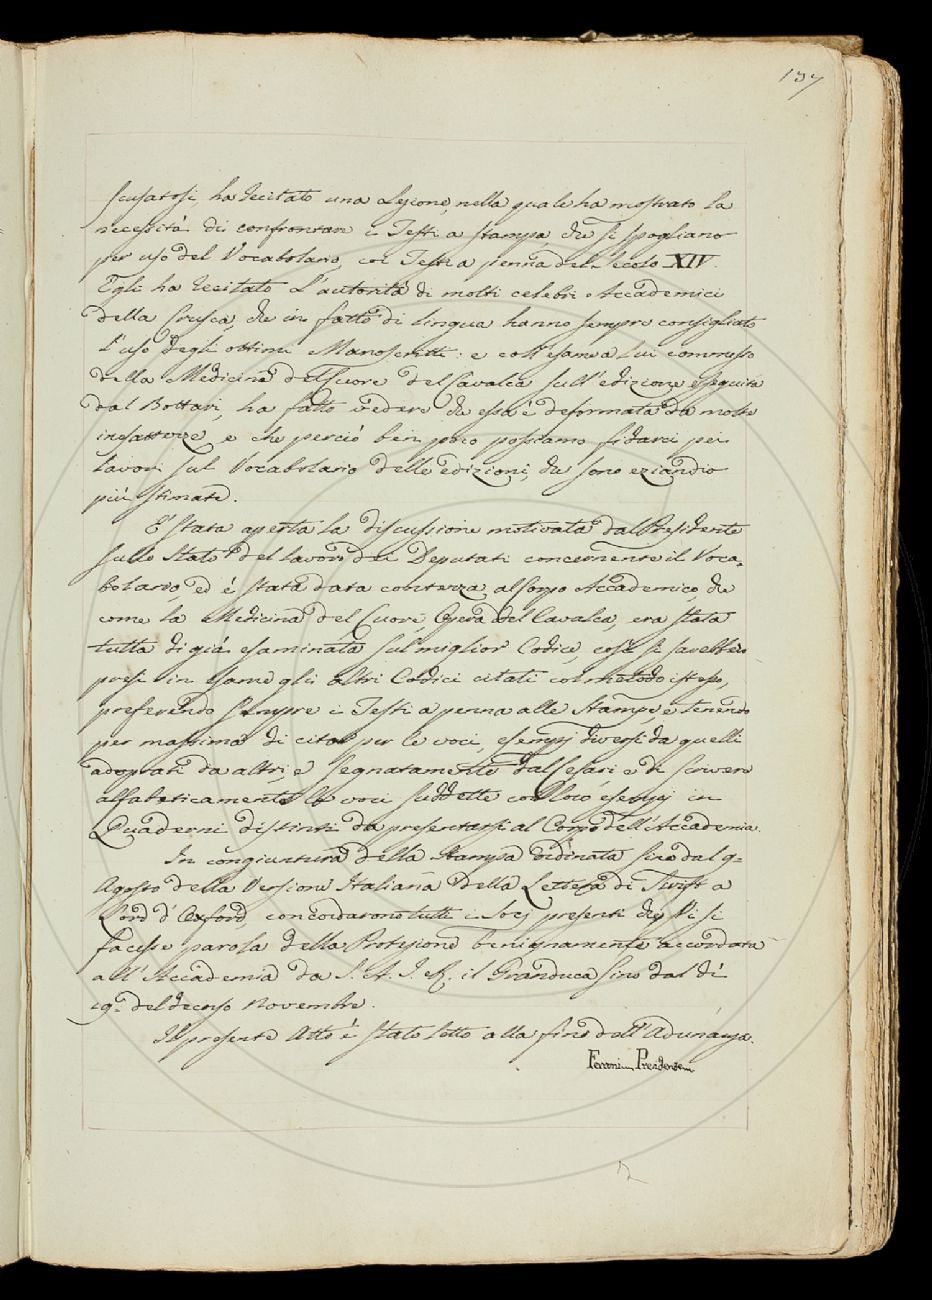 197
scusatosi, ha recitato una Lezione, nella quale ha mostrato la
necessità di confrontare i Testi a stampa, che si spogliano
per uso del Vocabolario, coi Testi a penna del Secolo XIV.
Egli ha recitato l'autorità di molti celebri Accademici
della Crusca, che in fatto di lingua hanno sempre consigliato
l'uso degli ottimi Manoscritti: e coll'esame a lui commesso
della Medicina del Cuore del Cavalca sull'edizione eseguita
dal Bottari, ha fatto vedere che essa è deformata da molte
inesattezze, e che perciò ben poco possiamo fidarci pei
lavori sul Vocabolario delle edizioni, che sono eziandio
più stimate.
E' stata aperta la discussione motivata dal Presidente
sullo Stato del lavoro dei Deputati concernente il Voca-
bolario, ed è stata data contezza al Corpo Accademico, che
come la Medicina del Cuore, Opera del Cavalca, era stata
tutta di già esaminata sul miglior Codice, così si sarebbero
presi in esame gli altri Codici citati col metodo istesso,
preferendo sempre i Testi a penna alle Stampe, e tenendo
per massima di citar per le voci, esempj diversi da quelli
adoprati da altri, e segnatamente dal Cesari, e di scrivere
alfabeticamente le voci suddette con loro esempj in
Quaderni distinti da presentarsi al Corpo dell'Accademia.
In congiuntura della Stampa ordinata sino dal 9.
Agosto della Versione Italiana della Lettera di Swift a
Lord d'Oxford, concordarono tutti i Socj presenti che vi si
facesse parola della Protezione benignamente accordata
all'Accademia da S. A. I. e R. il Granduca sino dal dì
19. del decorso Novembre.
Il presente Atto è stato letto alla fine dell'Adunanza.
Ferroni Presidente